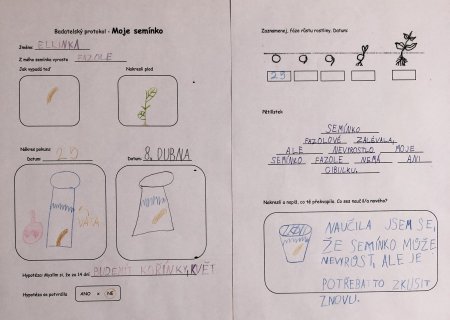 Badatelský protokol - Moje semínko
Jméno: ELLINKA
Z mého semínka vyrostla FAZOLE
Jak vypadá teď
Nakresli plod
Nákres pokusu
Datum: 25
Datum: 8. DUBNA
VATA
Hypotéza: Myslím si, že za 14 dní BUDE MÍT KOŘÍNKY, KVĚT
Hypotéza se potvrdila ANO x NE
Zaznamenej, fáze růstu rostliny. Datum:
25
Pětilístek
SEMÍNKO
FAZOLOVÉ ZALÉVALA,
ALE NEVIROSTLO MOJE
SEMÍNKO FAZOLE NEMÁ ANI
CIBULKU.
Nakresli a napiš, co tě překvapilo. Co ses naučil/a nového?
NAUČILA JSEM SE,
ŽE SEMÍNKO MŮŽE
NEVIROST, ALE JE
POTŘEBA TO ZKUSIT
ZNOVU.